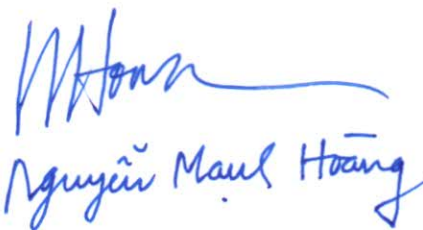 MHoan
Nguyễn Mạnh Hoàng